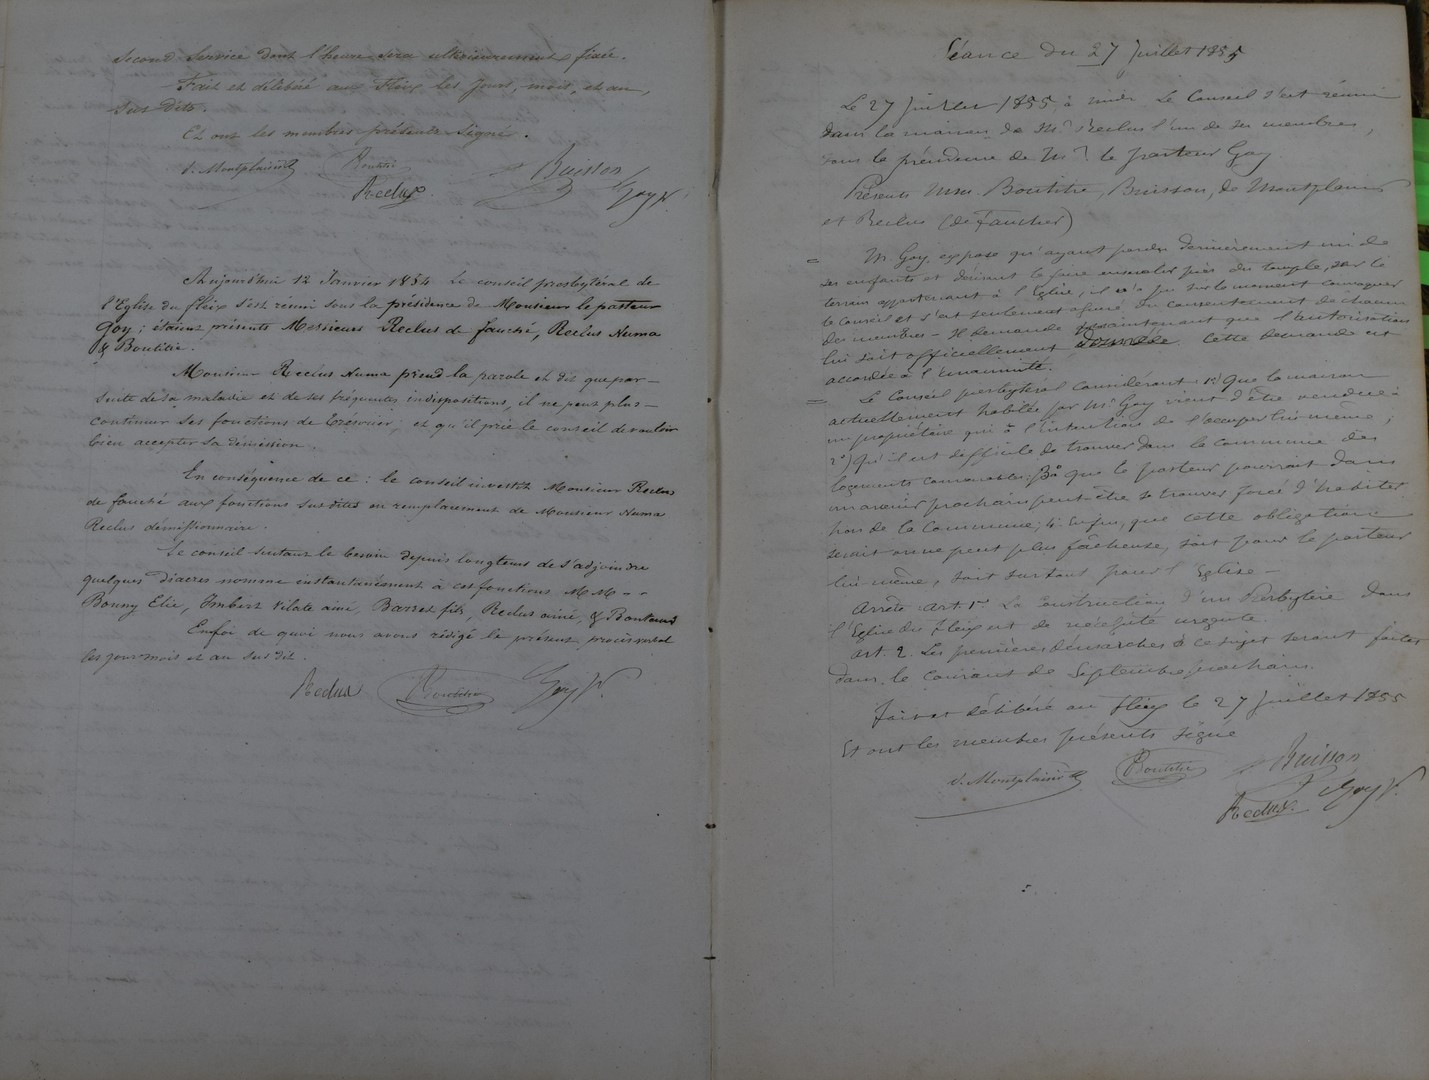 Second Service dont l'heure sera ultérieurement fixée.
Fait et délibéré au Fleix les Jours, mois, et an,
Sus dits.
Et ont les membres présents Signé.
V. Montplaisir Boutitie Buisson
Reclus Goy P.
Aujourd'hui 12 Janvier 1854 le conseil presbytéral de
l'Eglise du fleix s'est réuni sous la présidence de Monsieur le pasteur
Goy; étaient présents Messieurs Reclus de fauché, Reclus Numa
& Boutitie.
Monsieur Reclus Numa prend la parole et dit que par-
suite de sa maladie et de ses fréquentes indispositions, il ne peut plus-
continuer ses fonctions de trésorier; et qu'il prie le conseil de vouloir
bien accepter sa démission.
En conséquence de ce: le conseil investit Monsieur Reclus
de fauché aux fonctions susdites en remplacement de Monsieur Numa
Reclus démissionnaire.
Le conseil sentant le besoin depuis longtems de s'adjoindre
quelques diacres nomme instantanément à ces fonctions M M
Bonny Elie, Imbert Vilate ainé, Barret fils, Reclus ainé, &
Enfoi de quoi nous avons rédigé le présent procès verbal
les jour mois et an susdit.
Reclus Boutitie Goy P.
Séance du 27 Juillet 1855
Le 27 Juillet 1855 à midi Le Conseil s'est réuni
dans la maison de Mr Reclus l'un de ses membres,
sous la présidence de Mr le pasteur Goy
Présents Mrs. Boutitie, Buisson, de Montplaisir
et Reclus (de Faucher)
= M. Goy expose qu'ayant perdu dernièrement un de
ses enfants et désirant le faire ensevelir près du temple, sur le
terrain appartenant à l'Eglise, il n'a pu sur le moment convoquer
le Conseil et s'est seulement assuré du consentement de chacun
des membres - Il demande maintenant que l'autorisation
lui soit officiellement donnée. Cette demande est
accordée à l'unanimité.
= Le Conseil presbytéral considérant 1° Que la maison
actuellement habitée par Mr Goy vient d'être vendue à
un propriétaire qui a l'intention de l'occuper lui même;
2°) Qu'il est difficile de trouver dans la commune des
logements convenables; 3° que le pasteur pourrait dans
un avenir prochain peut être se trouver forcé d'habiter
hors de la Commune; 4° Enfin, que cette obligation
serait on ne peut plus fâcheuse, soit pour le pasteur
lui-même, soit surtout pour l'Eglise -
Arrête Art. 1er La Construction d'un Presbytère dans
l'Eglise du Fleix est de nécessité urgente.
Art. 2. Les premières démarches à ce sujet seront faites
dans le courant de Septembre prochain.
Fait et délibéré au fleix le 27 Juillet 1855
Et ont les membres présents signé
V. Montplaisir Boutitie Buisson
Reclus Goy P.